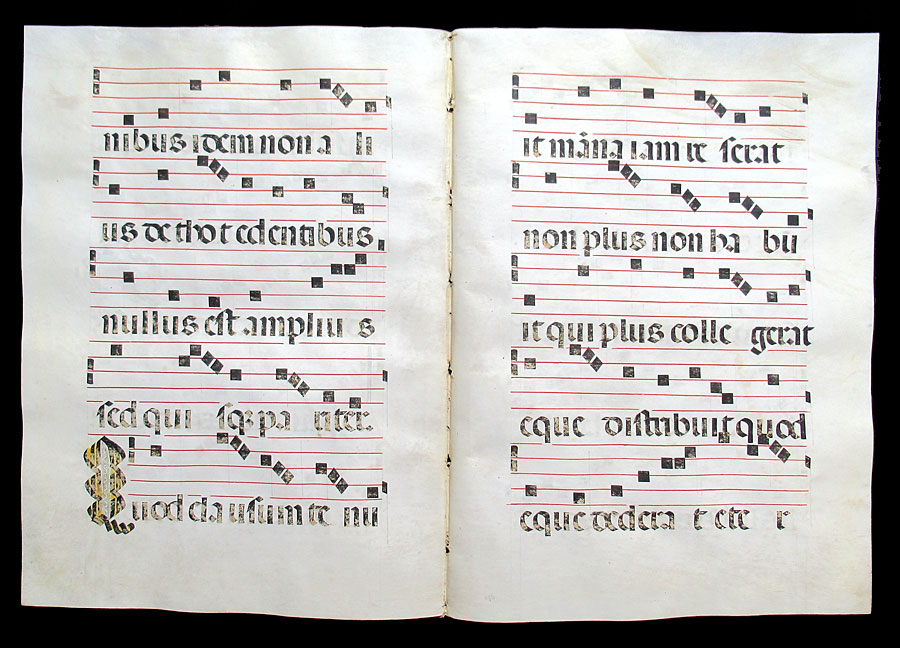 nibus idem non a li
us de thot edentibus
nullus est ampliu s
sed qui pa riter.
Quod cla usum te nu
it mãna iam te serat
non plus non ha bu
it qui plus colle gerat
eque distribuit quod
eque dedera t ete r